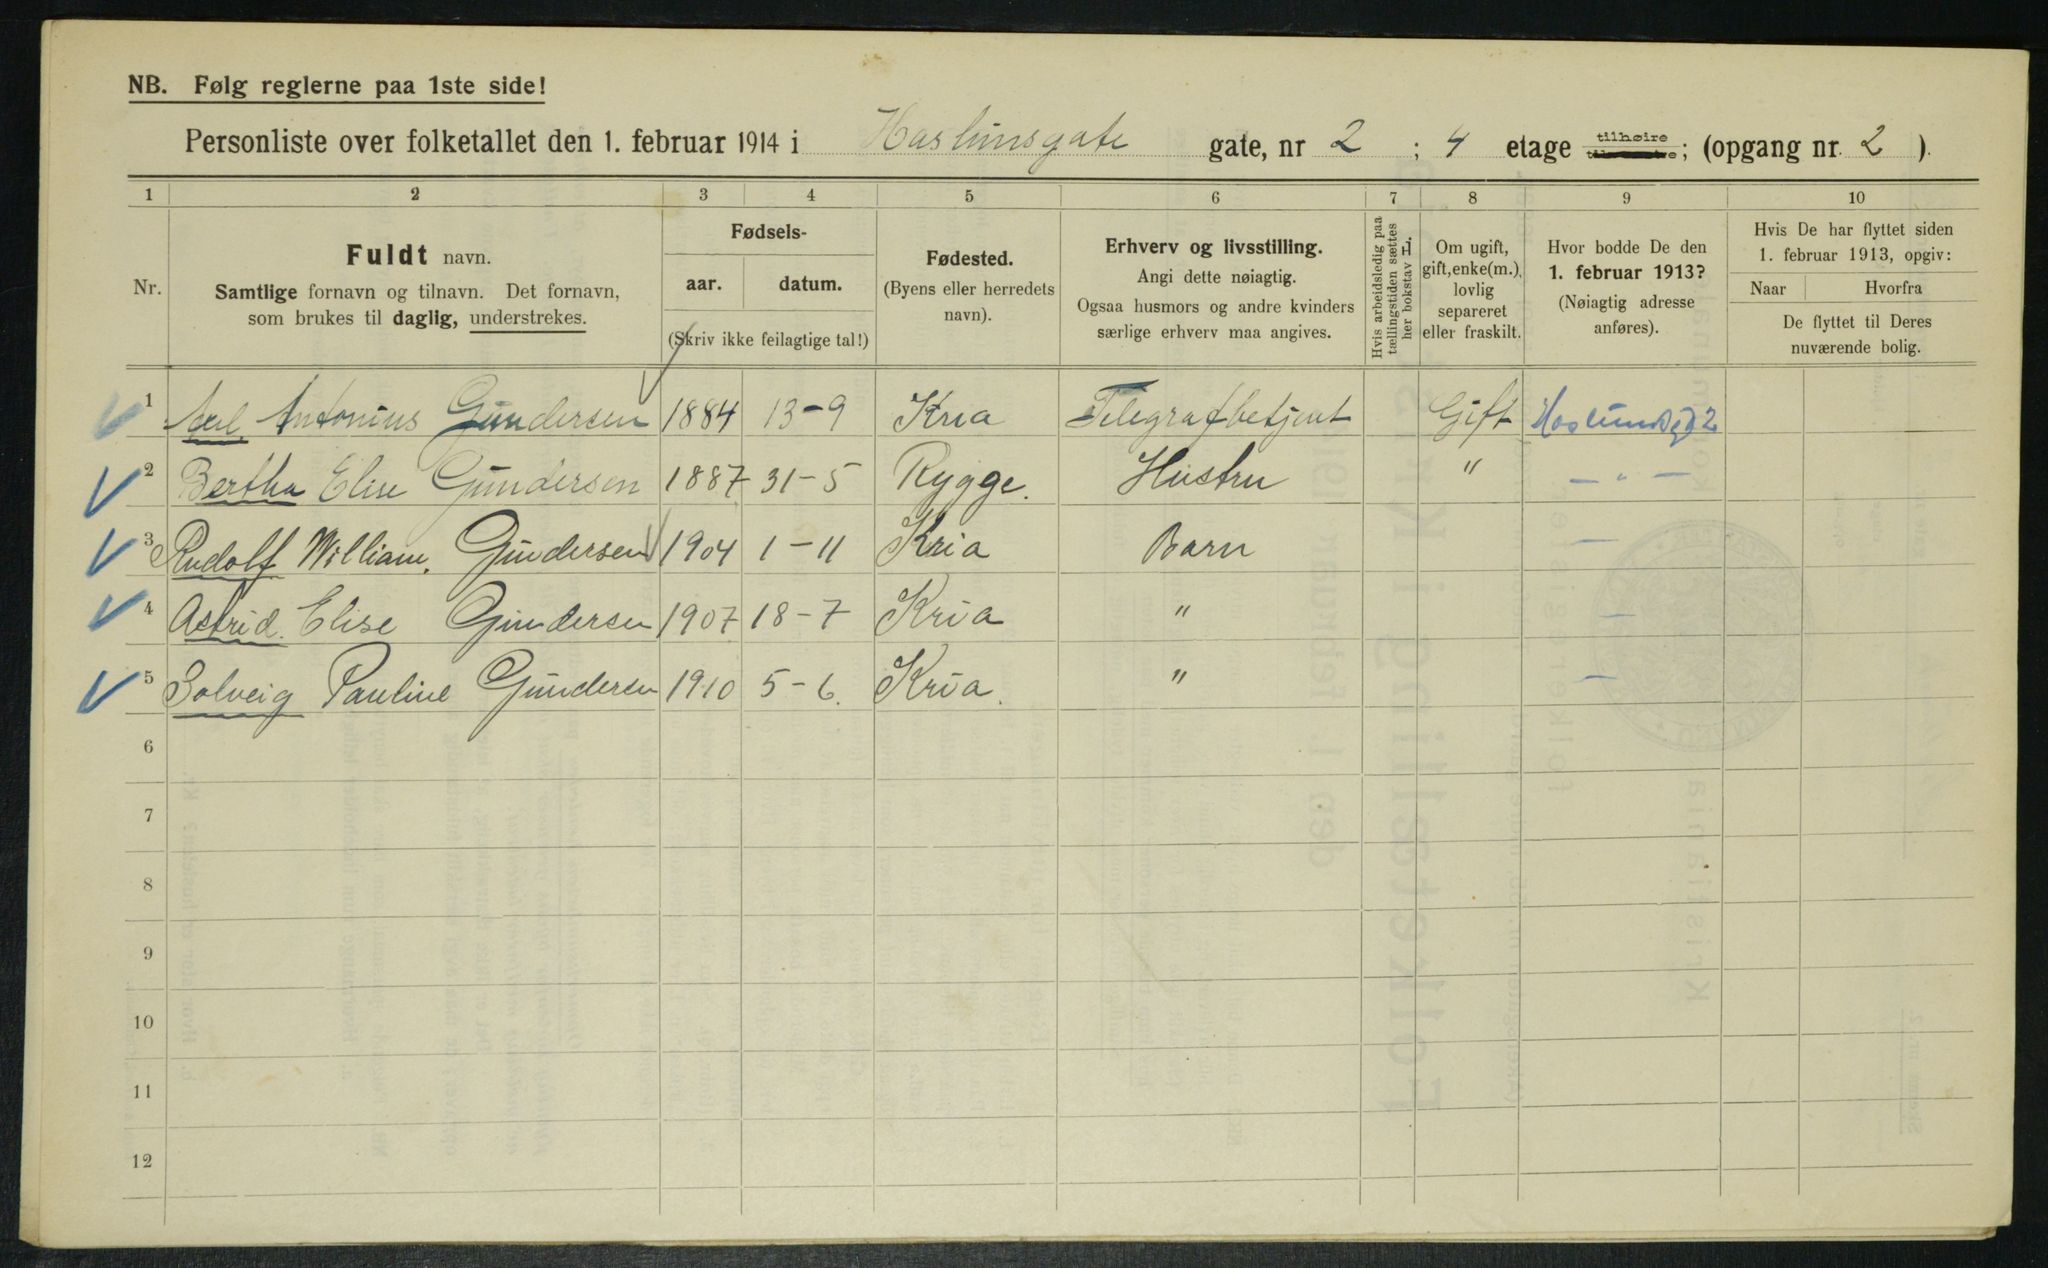 NB. Følg reglerne paa 1ste side!
Personliste over folketallet den 1. februar 1914 i Haslunsgate gate, nr 2 ; 4 etage tilhøire ; (opgang nr. 2 ).
1 2 3 4 5 6 7 8 9 10
Nr.
Fuldt navn.
Samtlige fornavn og tilnavn. Det fornavn,
som brukes til daglig, understrekes.
Fødsels-
aar. datum.
(Skriv ikke feilagtige tal!)
Fødested.
(Byens eller herredets
navn).
Erhverv og livsstilling.
Angi dette nøiagtig.
Ogsaa husmors og andre kvinders
særlige erhverv maa angives.
Hvis arbeidsledig paa
tællingstiden sættes
her bokstav L.
Om ugift,
gift, enke(m.),
lovlig
separeret
eller fraskilt.
Hvor bodde De den
1. februar 1913?
(Nøiagtig adresse
anføres).
Hvis De har flyttet siden
1. februar 1913, opgiv:
Naar Hvorfra
De flyttet til Deres
nuværende bolig.
1 Antonius Gundersen 1884 13-9 Kria Telegrafbetjent Gift Haslundsg 2
2 Bertha Elise Gundersen 1887 31-5 Rygge. Hustru " — " —
3 Rudolf William. Gundersen 1904 1-11 Kria Barn —
4 Astrid. Elise Gundersen 1907 18-7 Kria " —
5 Solveig Pauline Gundersen 1910 5-6. Kria. " —
6
7
8
9
10
11
12